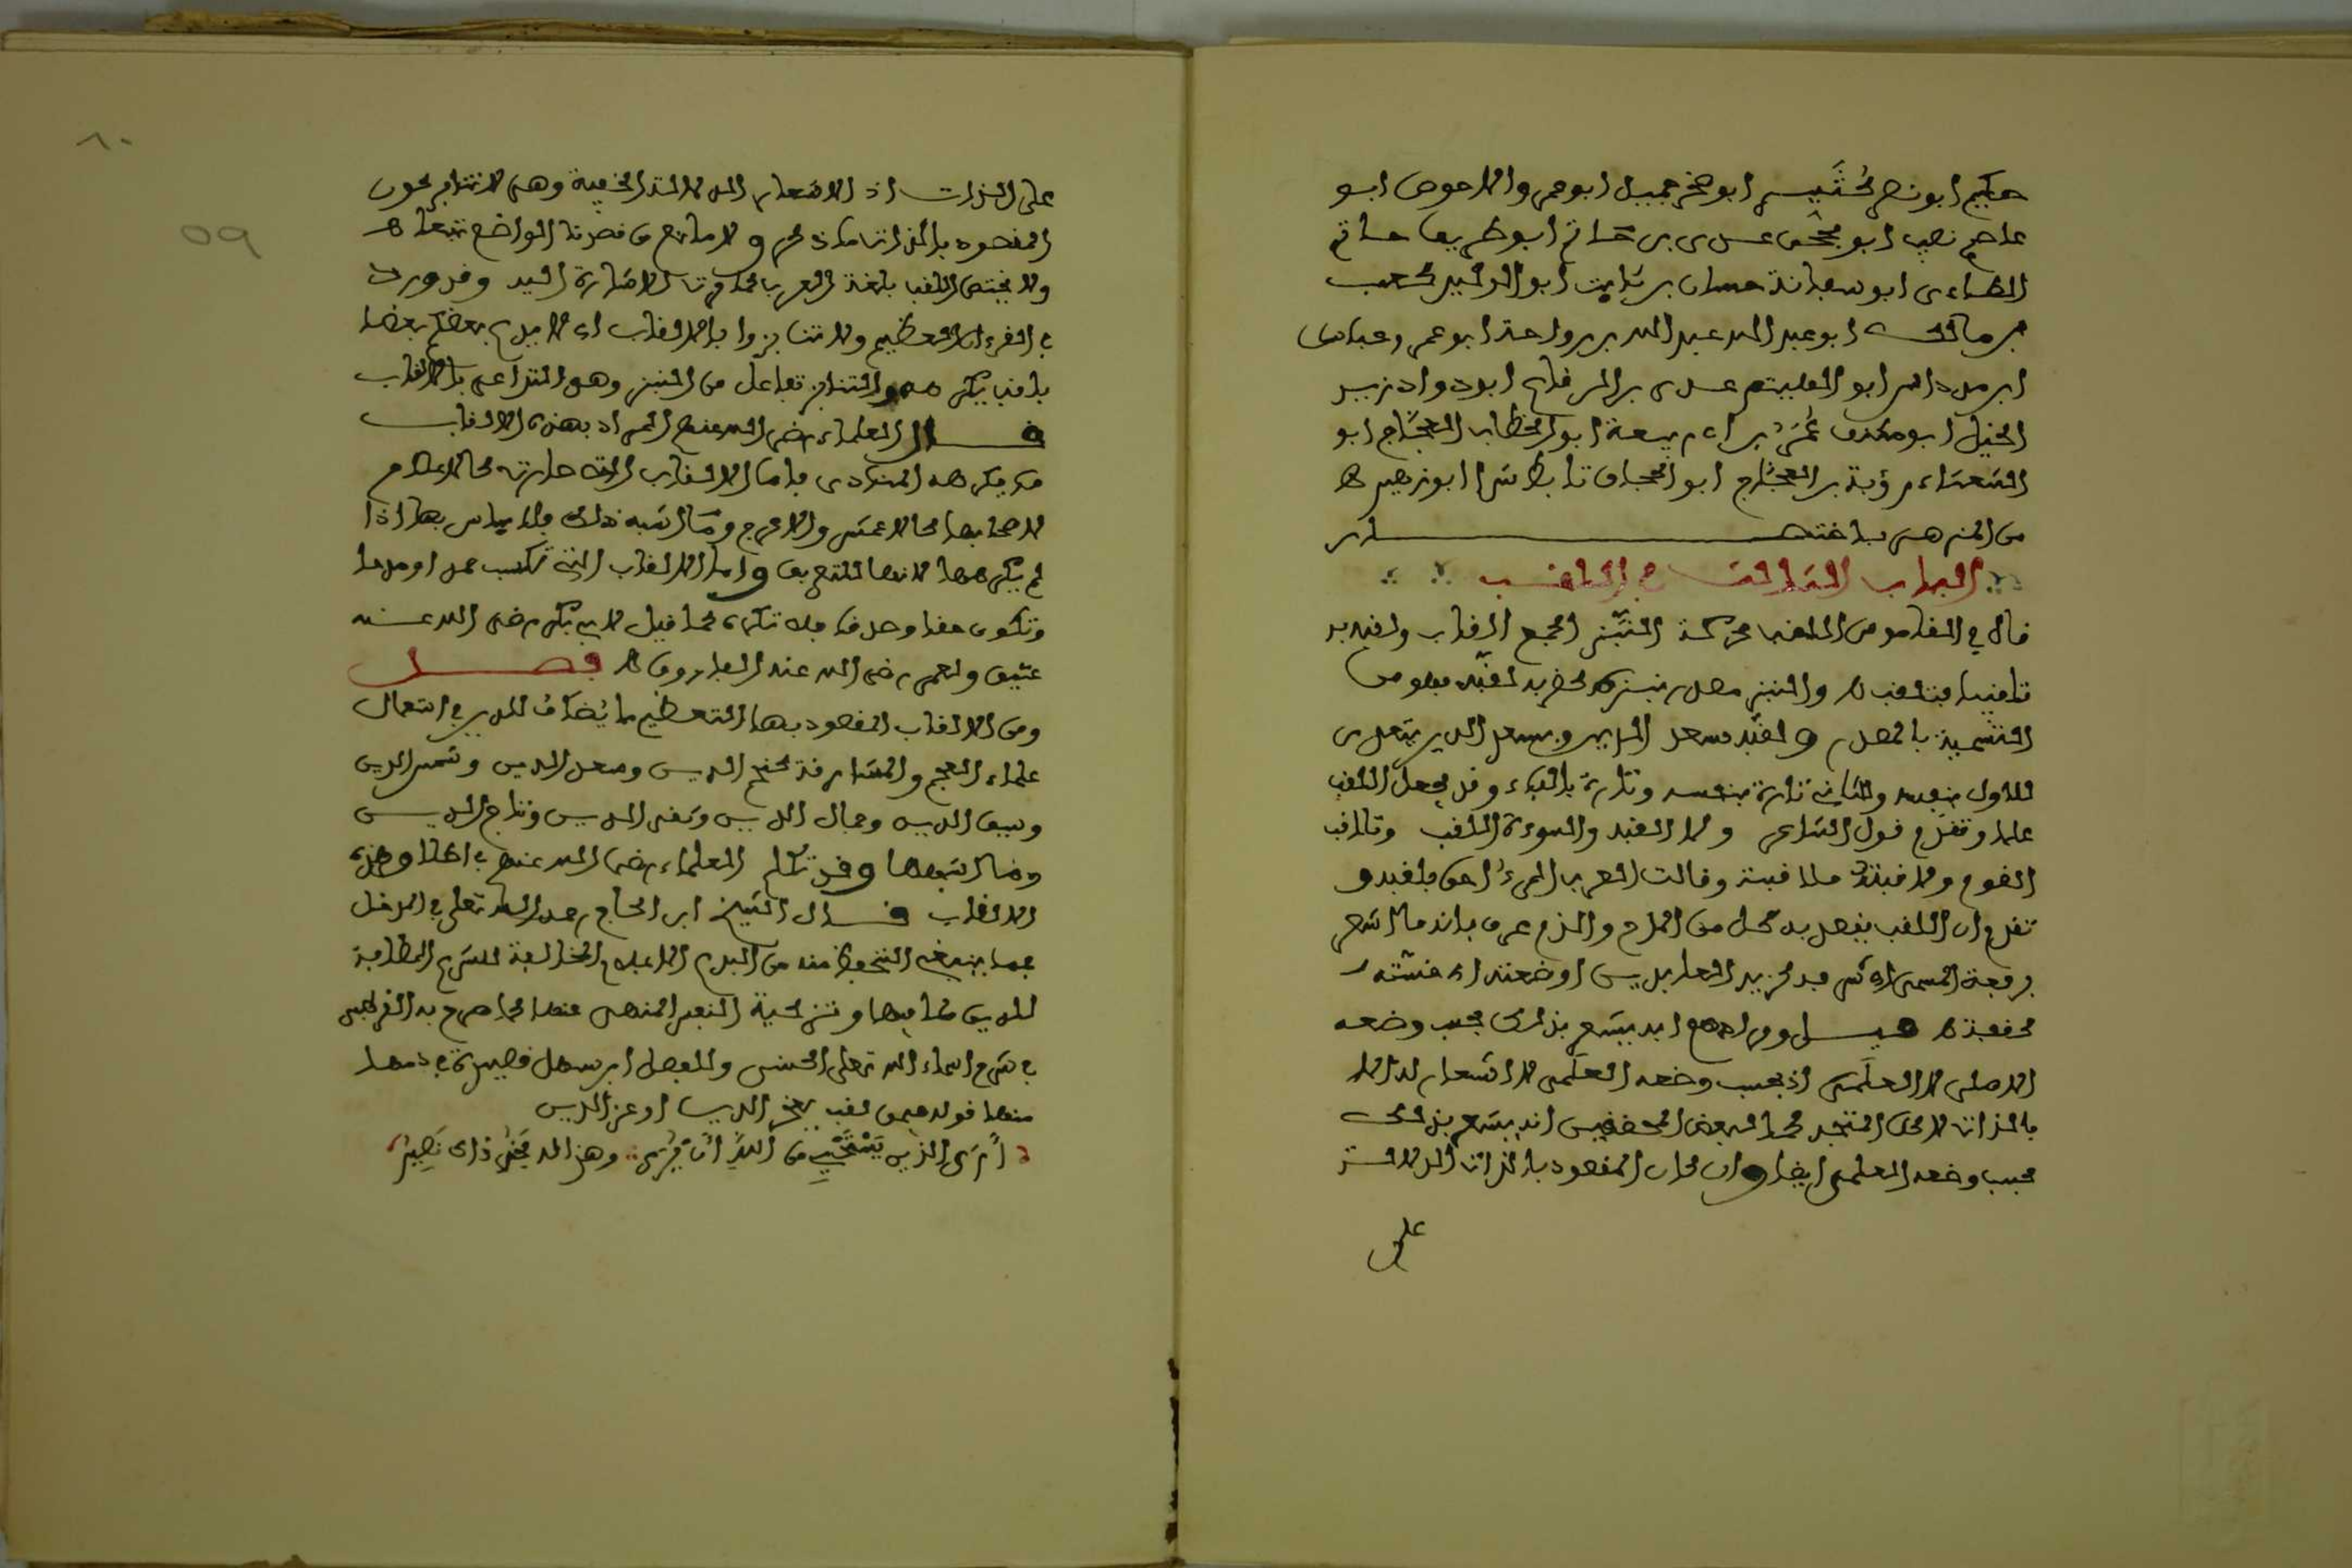 حكيم ابو نصر كثير ابو صخر جميل ابو عمر والاحوص ابو
عاصم نصيب ابو محجن عدى بن حاتم ابو طريف حاتم
الطاءى ابو سفانة حسان بن ثابت ابو الوليد كعب
بن مالك ابو عبد الله عبد الله بن رواحة ابو عمر وعباس
ابن مرداس ابو الهيثم عدى بن الرقاع ابو دواد زيد
الخيل ابو مكنف عمر بن ابى ربيعة ابو الخطاب العجاج ابو
الشعثاء رؤبة بن العجاج ابو الجحاف تابط شرا ابو زهير ه
من المزهر باختصــار
الباب الثالث في اللقب
قال في القاموس اللقب محركة النبز الجمع القاب ولقبه به
تلقيبا فتلقب ه والنبز مصدر نبزه كضربه لقبه فهو من
التسمية بالمصدر ولقبه يتعدى
للاول بنفسه وللثانى تارة بنفسه وتارة بالباء وقد يجعل اللقب
علما وتقدم قول الشاعر ولا القبه والسوءة اللقب وتلاقب
القوم ولاقبته ملاقبة وقالت العرب المرء احق بلقبه و
تقدم ان اللقب يقصد به كل من المدح والذم عرف بانه ما اشعر
برفعة المسمى به كزين العابدين او ضعته او خسته
كقفة ه وهل يشعر بذلك بحسب وضعه
الاصلى لا العلمى اذ بحسب وضعه العلمى لا اشعار له الا
بالذات لاكن المتجه كما لبعض المحققين انه يشعر بذلك
بحسب وضعه العلمى ايضا وان كان المقصود بالذات الدلالة
على
على الذات اذ الاشعار الدلالة الخفية وهى لا تنافي كون
المقصود بالذات ما ذكر ولا مانع من قصدنا الواضع تبعا ه
ولا يختص اللقب بلغة العرب كما مرت الاشارة اليه وقد ورد
في القرءان العظيم ولا تنابزوا بالالقاب اى لا يدع بعضكم بعضا
بلقب يكرهه والتنابز تفاعل من النبز وهو التداعى بالالقاب
قــال العلماء رضى الله عنهم المراد بهذه الالقاب
ما يكرهه المنادى فاما الالقاب التى صارت كالاعلام
لاصحابها كالاعمش والاعرج وما اشبه ذلك فلا باس بها اذا
لم يكرهها لانها للتعريف واما الالقاب التى تكسب حمدا ومدحا
وتكون حقا وصدقا فلا تكره كما قيل لابى بكر رضى الله عنه
عتيق ولعمر رضى الله عنه الفاروق ه فصــل
ومن الالقاب المقصود بها التعظيم ما يضاف للدين في استعمال
علماء العجم والمشارقة كنجم الدين وسعد الدين وشمس الدين
وسيف الدين وجمال الدين وتقى الدين وتاج الدين
وما اشبهها وقد تكلم العلماء رضى الله عنهم في اطلاق هذه
الالقاب قــال الشيخ ابن الحاج رحمه الله تعلى في المدخل
فيما ينبغى التحفظ منه من البدع الاعلام المخالفة للشرع المضافة
للدين لما فيها من تزكية النفس المنهى عنها كما صرح به القرطبى
في شرح اسماء الله تعلى الحسنى وللفضل ابن سهل قصيدة في ذمها
منها قوله فيمن لقب بفخر الدين او عز الدين
أرى الدين يستحيي من الله أن يرى وهذا له فخر وذاك نصير